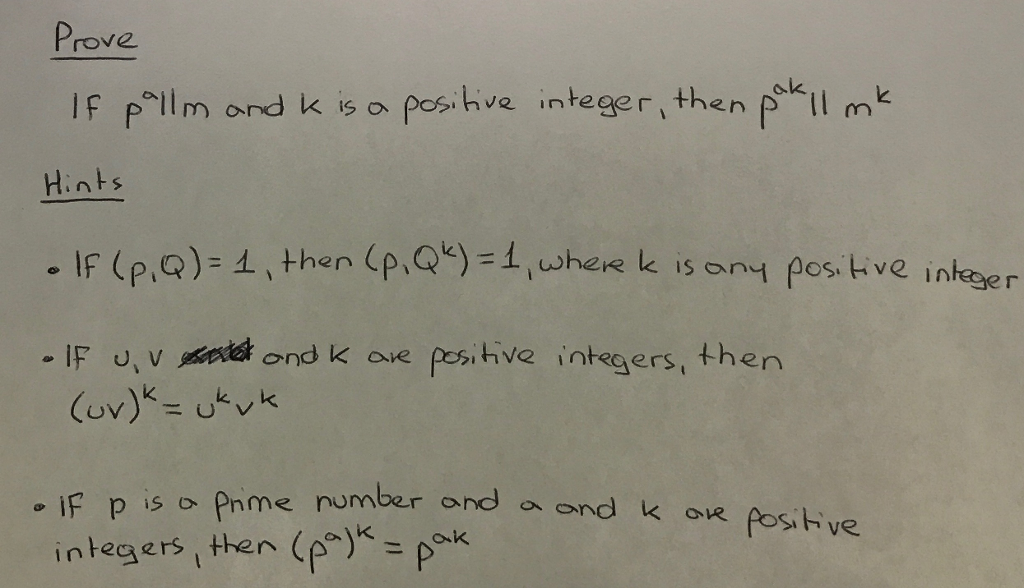 Prove
If pᵃ||m and k is a positive integer, then pᵃᵏ|| mᵏ
Hints
• If (p,Q) = 1, then (p,Qᵏ) = 1, where k is any positive integer
• If u, v and k are positive integers, then
(uv)ᵏ = uᵏvᵏ
• If p is a prime number and a and k are positive
integers, then (pᵃ)ᵏ = pᵃᵏ